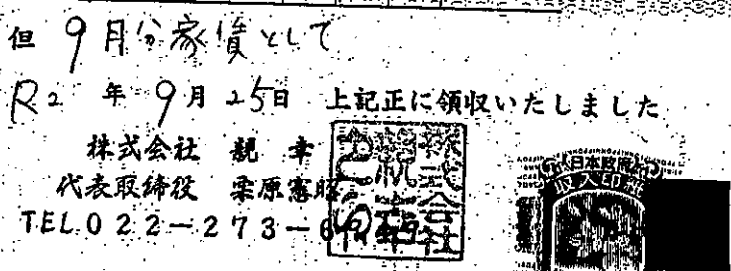 但 9月分家賃として
R2 年 9月 25日 上記正に領収いたしました
株式会社 親幸
代表取締役 栗原憲昭
TEL 022-273-6
日本政府
収入印紙